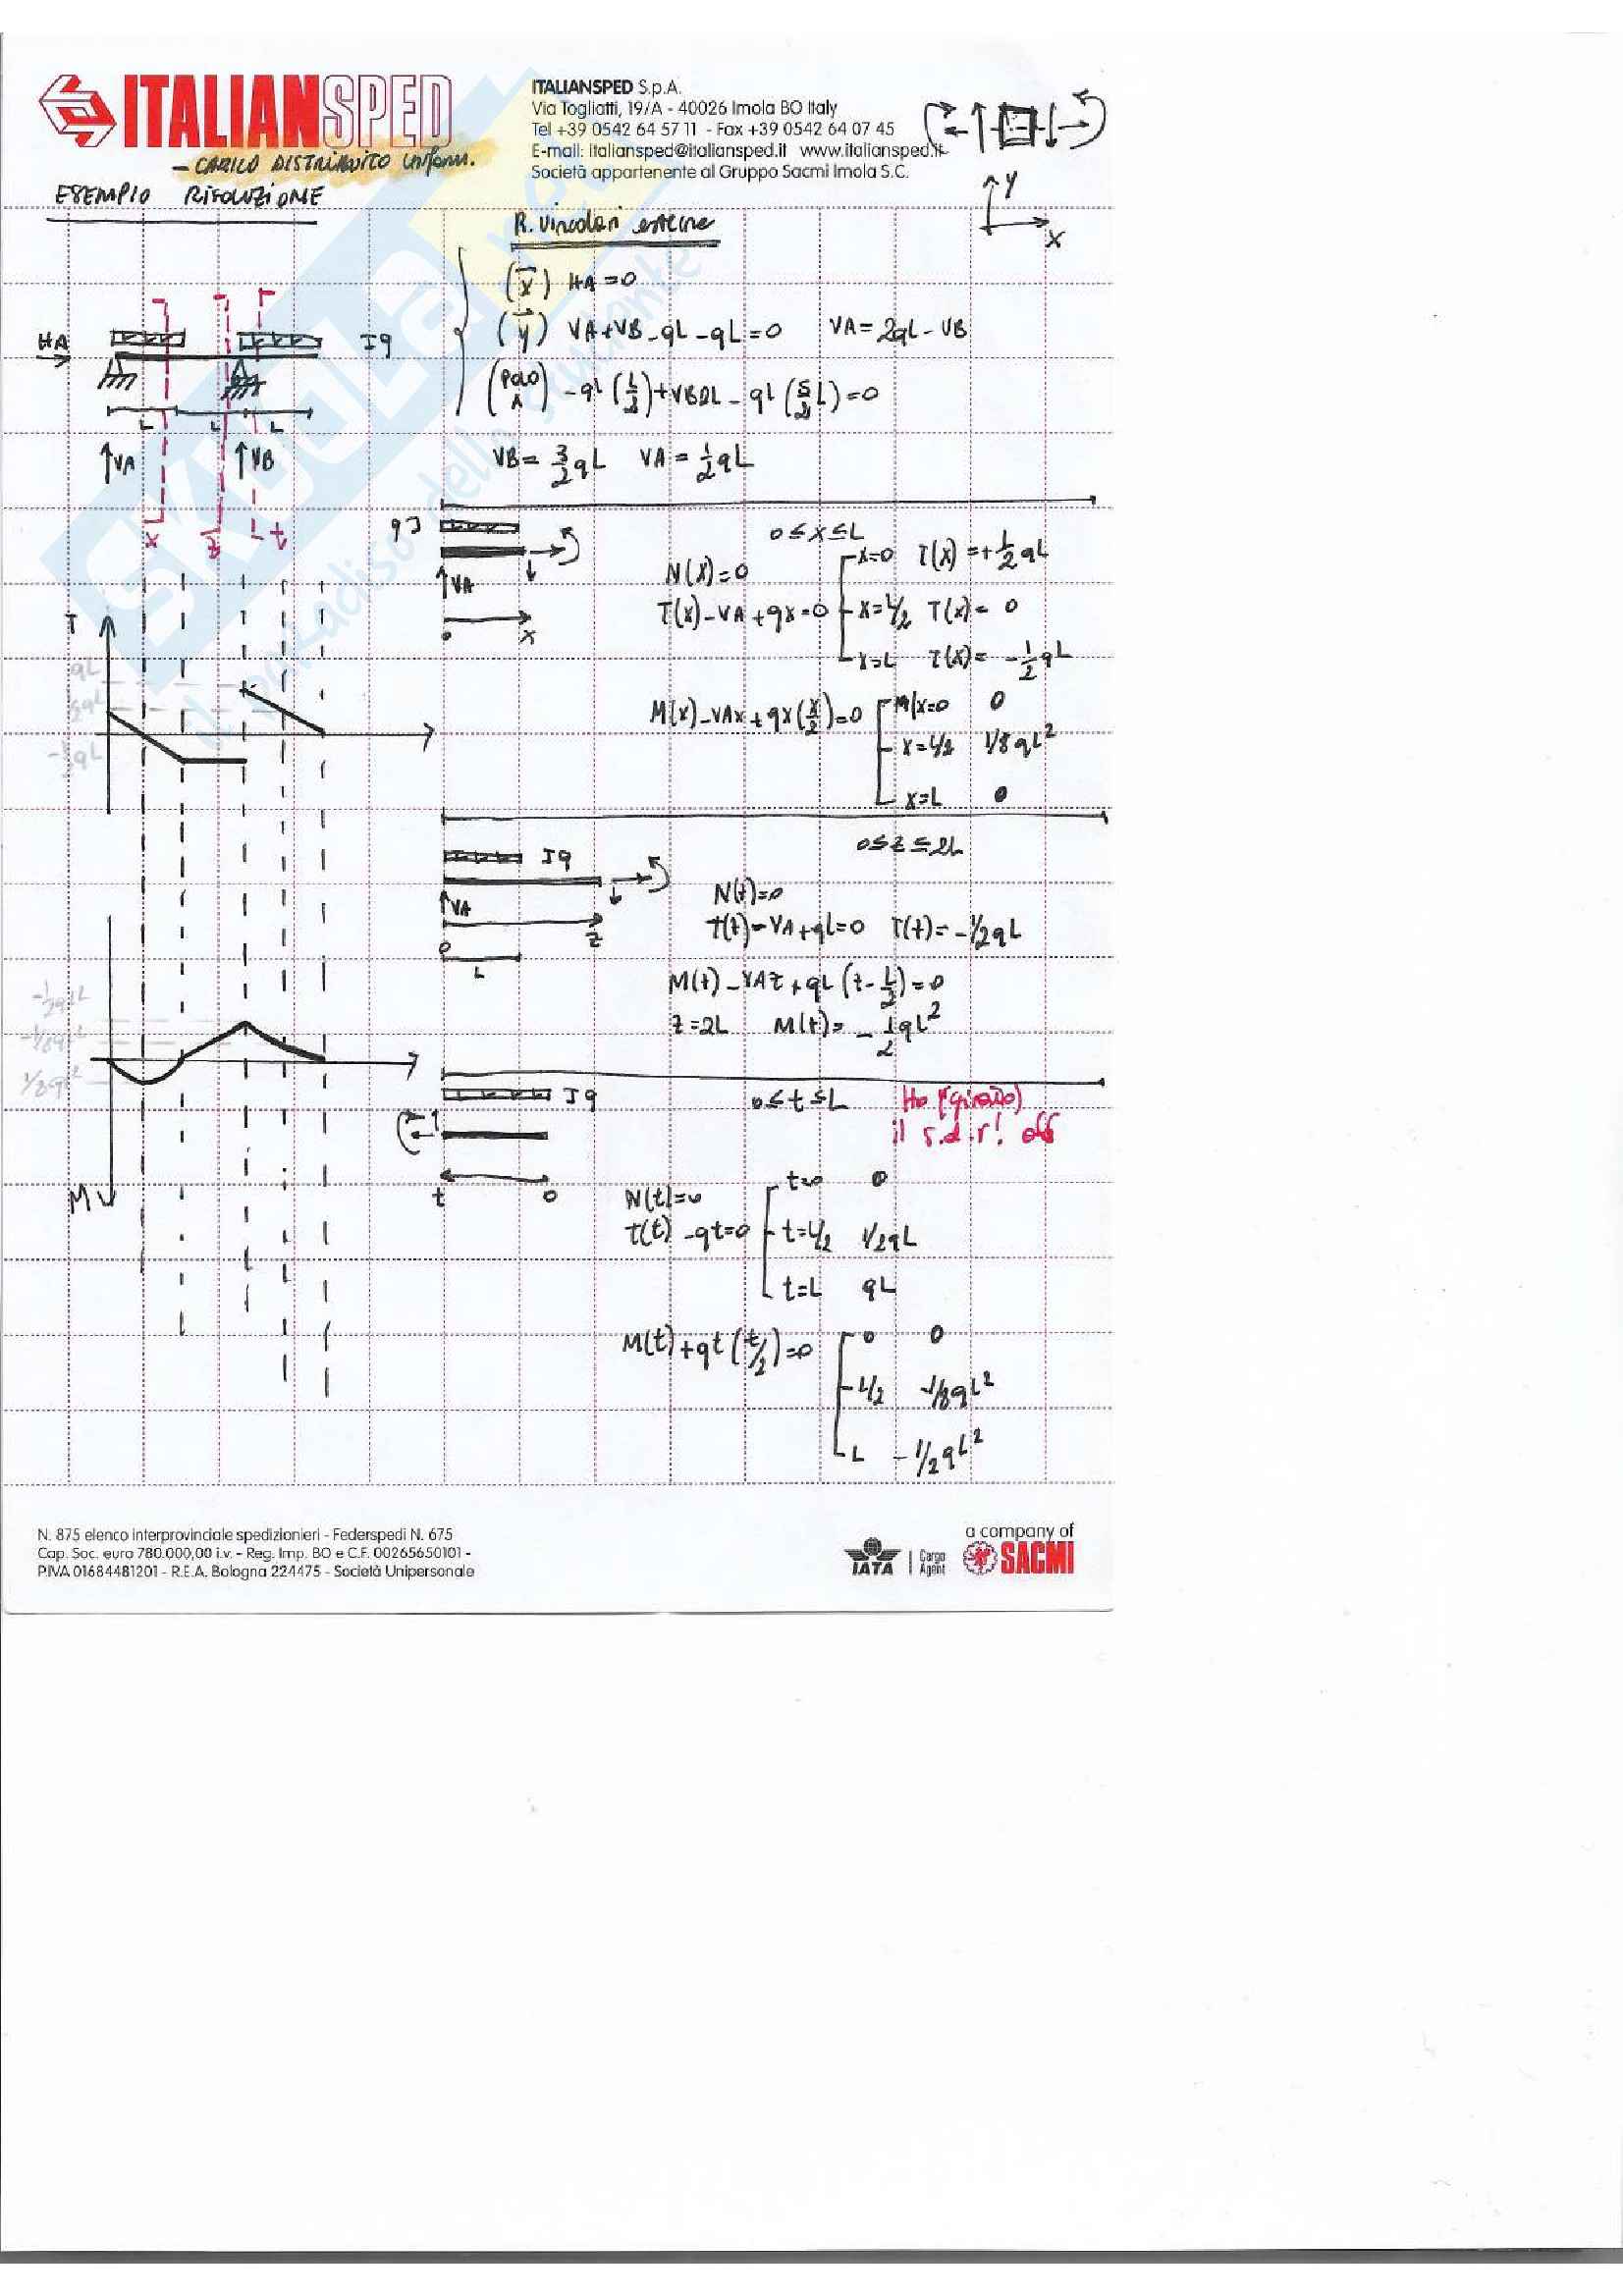 ITALIANSPED
ITALIANSPED S.p.A.
Via Togliatti, 19/A - 40026 Imola BO Italy
Tel +39 0542 64 57 11 - Fax +39 0542 64 07 45
E-mail: italiansped@italiansped.it www.italiansped.it
Società appartenente al Gruppo Sacmi Imola S.C.
- CARICO DISTRIBUITO Uniform.
ESEMPIO RISOLUZIONE
Y
X
R. Vincolari esterne
(x) HA=0
(y) VA+VB-qL-qL=0 VA=2qL-VB
(POLO A) -qL(L/2)+VB2L-qL(5/2L)=0
VB=3/2qL VA=1/2qL
HA
q
L L L
VA VB
x z t
q
VA
0 x
0≤x≤L
N(x)=0
T(x)-VA+qx=0
x=0 T(x)=+1/2qL
x=L/2 T(x)=0
x=L T(x)=-1/2qL
M(x)-VAx+qx(x/2)=0
M/x=0 0
x=L/2 1/8qL²
x=L 0
T
qL
1/2qL
-1/2qL
q
VA
0 z
L
0≤z≤2L
N(t)=0
T(t)-VA+qL=0 T(t)=-1/2qL
M(t)-VAz+qL(t-L/2)=0
z=2L M(t)=-1/2qL²
-1/2qL
-1/8qL²
1/8qL²
M
q
t 0
0≤t≤L
Ho (girato)
il s.d.r! off
N(t)=0
T(t)-qt=0
t=0 0
t=L/2 1/2qL
t=L qL
M(t)+qt(t/2)=0
0 0
L/2 -1/8qL²
L -1/2qL²
N. 875 elenco interprovinciale spedizionieri - Federspedi N. 675
Cap. Soc. euro 780.000,00 i.v. - Reg. Imp. BO e C.F. 00265650101 -
P.IVA 01684481201 - R.E.A. Bologna 224475 - Società Unipersonale
IATA
Cargo
Agent
a company of
SACMI
SKUOLA.net
il paradiso dello studente